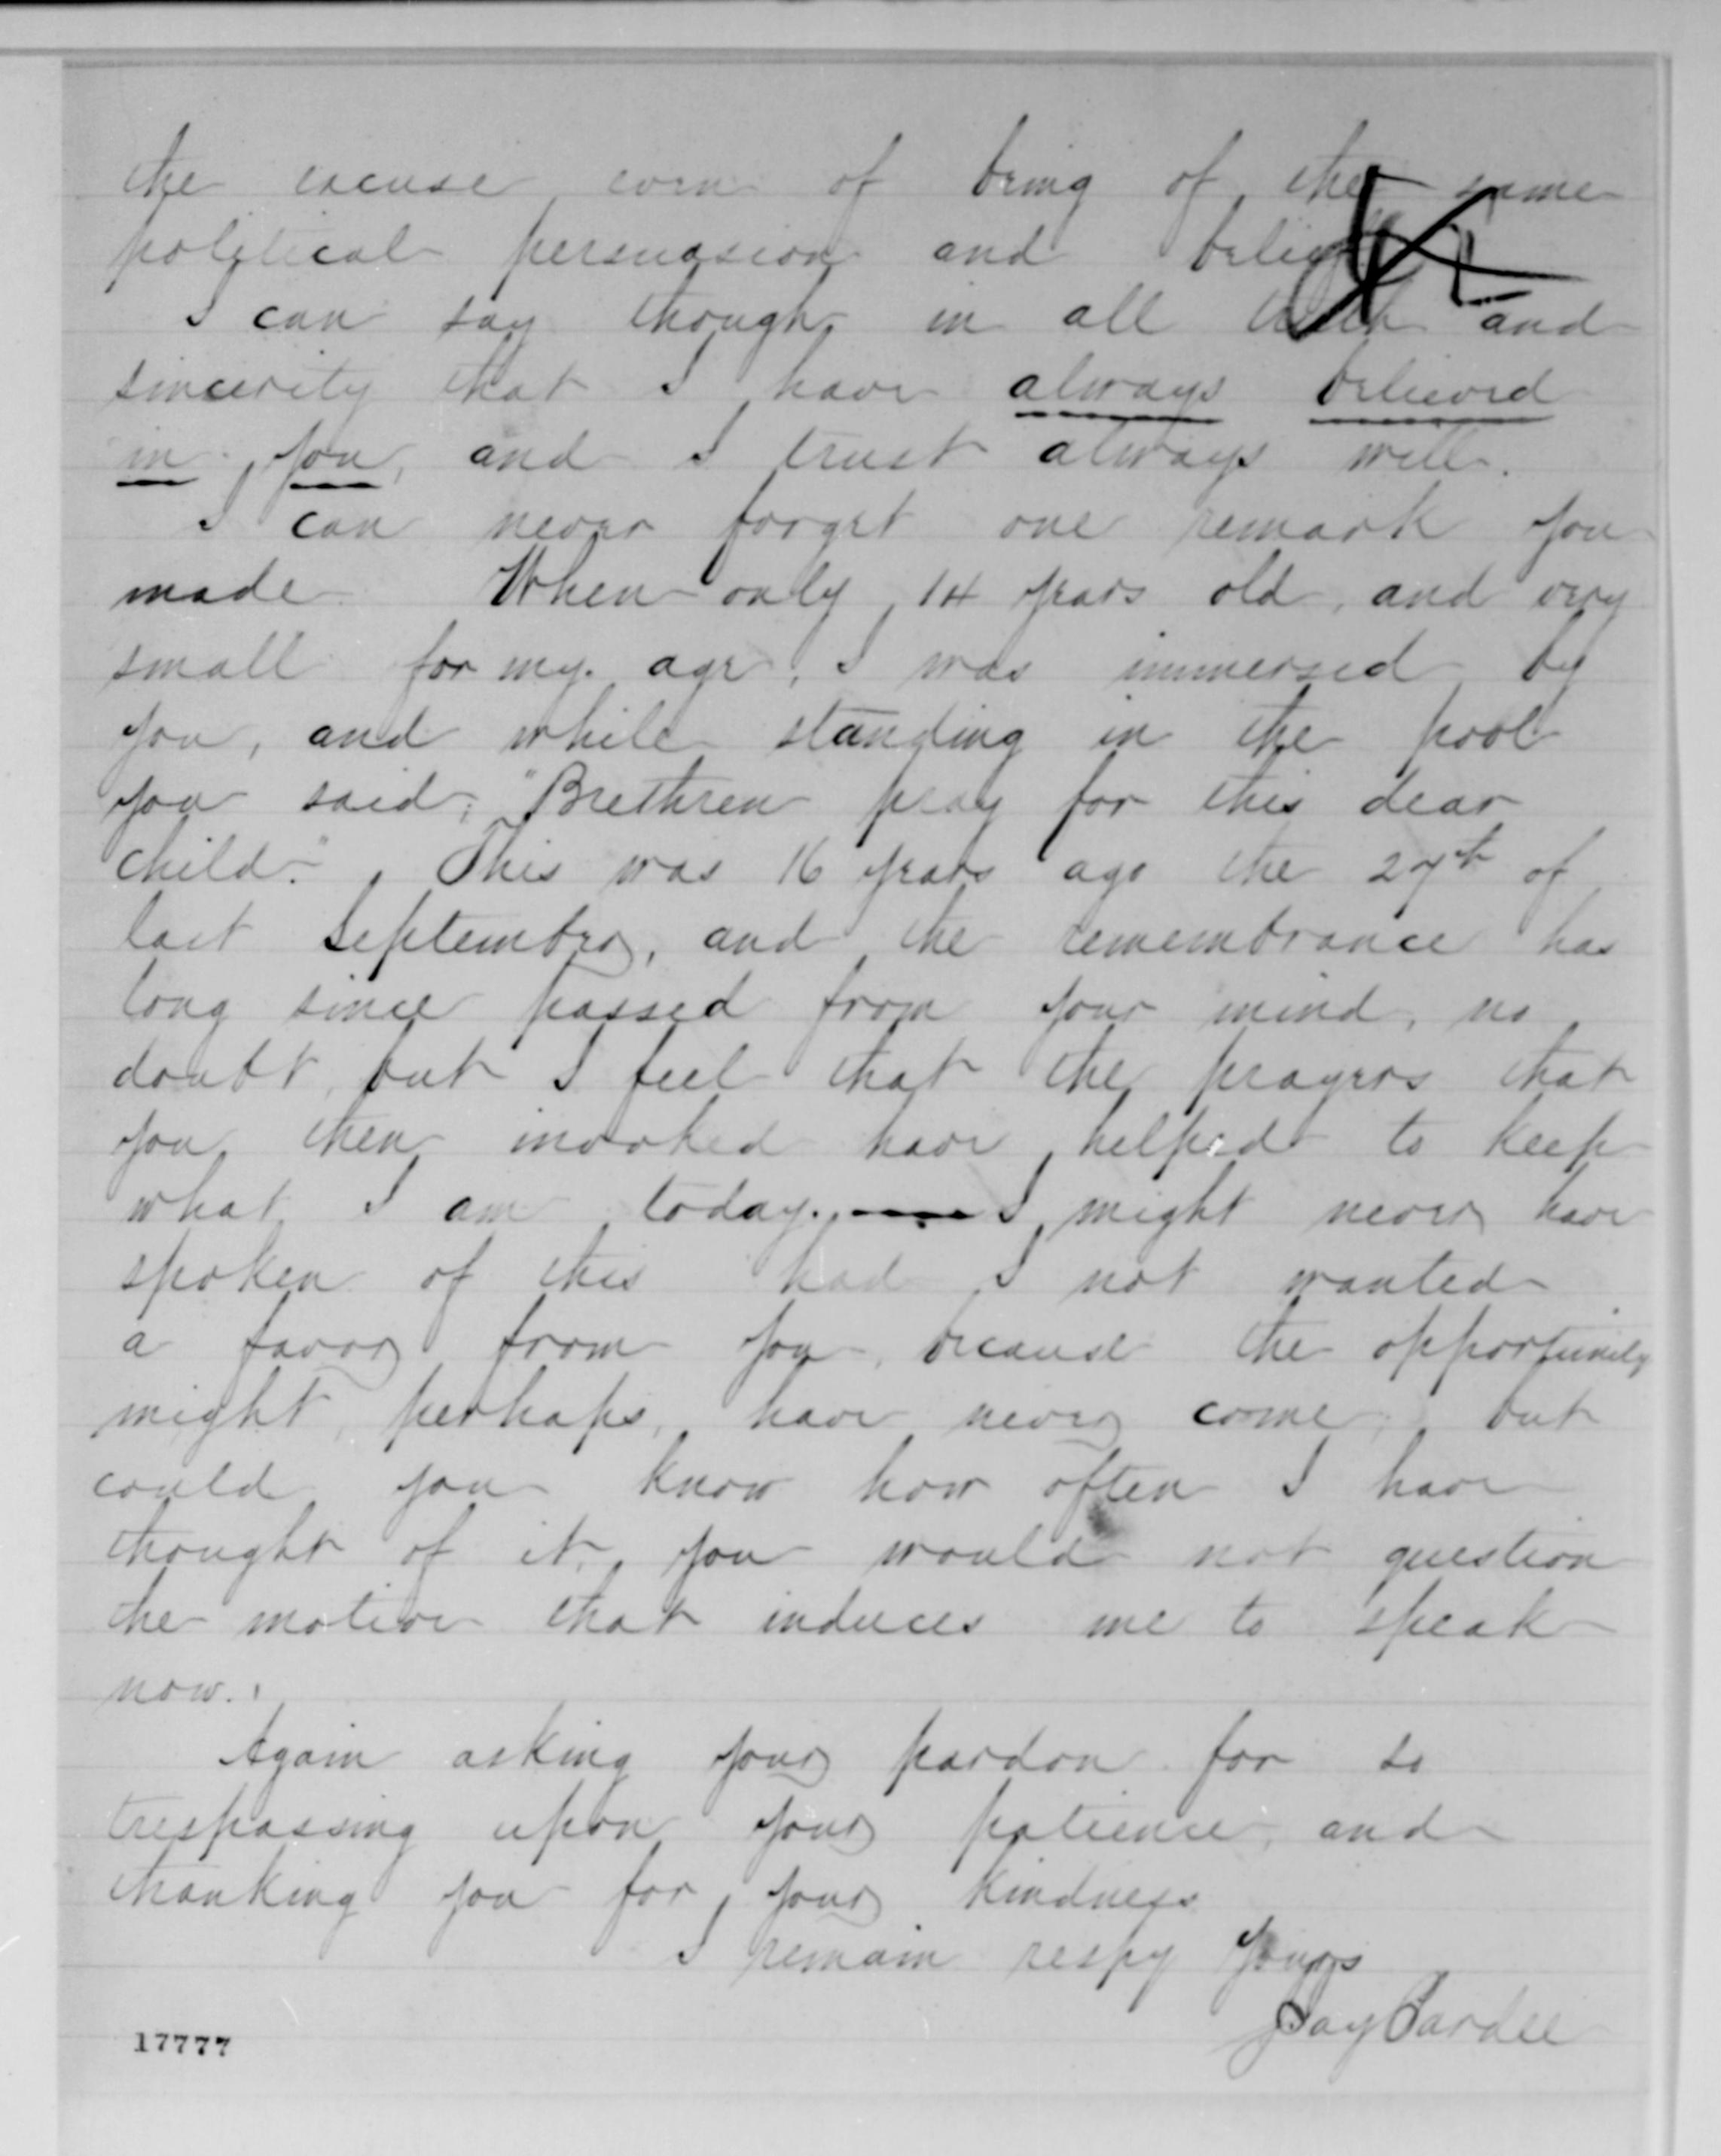 the excuse even of being of the same
political persuasion and belief
I can say though, in all truth and
sincerity that I have always believed
in you, and I trust always will.
I can never forget one remark you
made. When only 14 years old, and very
small for my age, I was immersed by
you, and while standing in the pool
you said, "Brethren pray for this dear
child." This was 16 years ago the 27th of
last September, and the remembrance has
long since passed from your mind, no
doubt, but I feel that the prayers that
you then invoked have helped to keep
what I am today. — I might never have
spoken of this had I not wanted
a favor from you, because the opportunity
might, perhaps, have never come, but
could you know how often I have
thought of it, you would not question
the motive that induces me to speak
now.
Again asking your pardon for so
trespassing upon your patience, and
thanking you for your kindness
I remain respy yours
Jay Pardee
17777